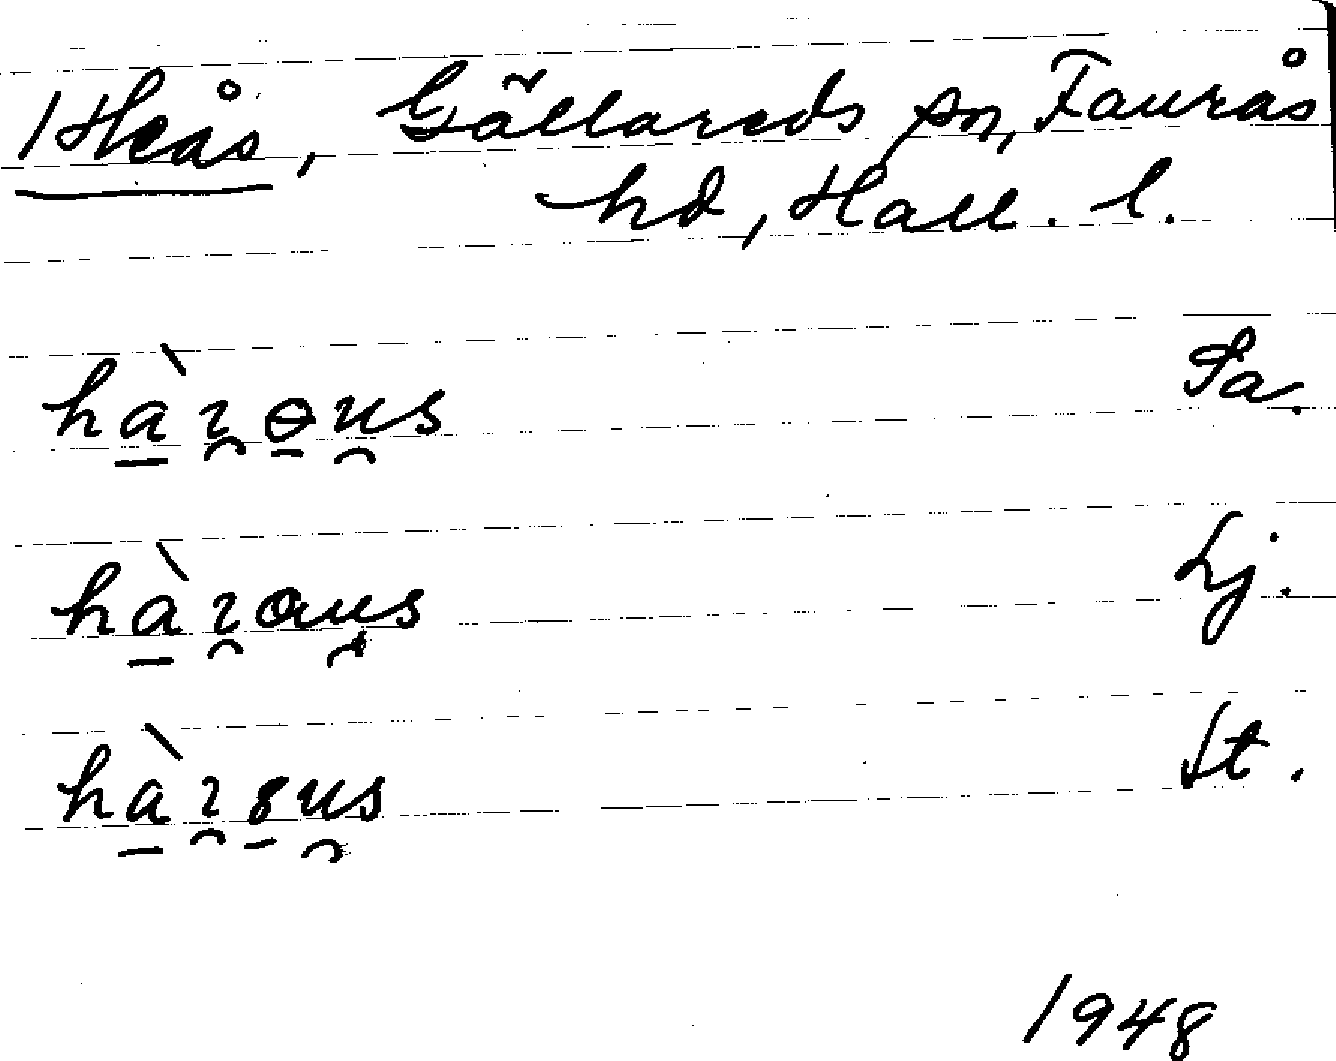 Heås, Gällareds sn, Faurås
hd, Hall. l.
hàɿɵus Sa.
hàɿaus Lj.
hàɿ8us St.
1948